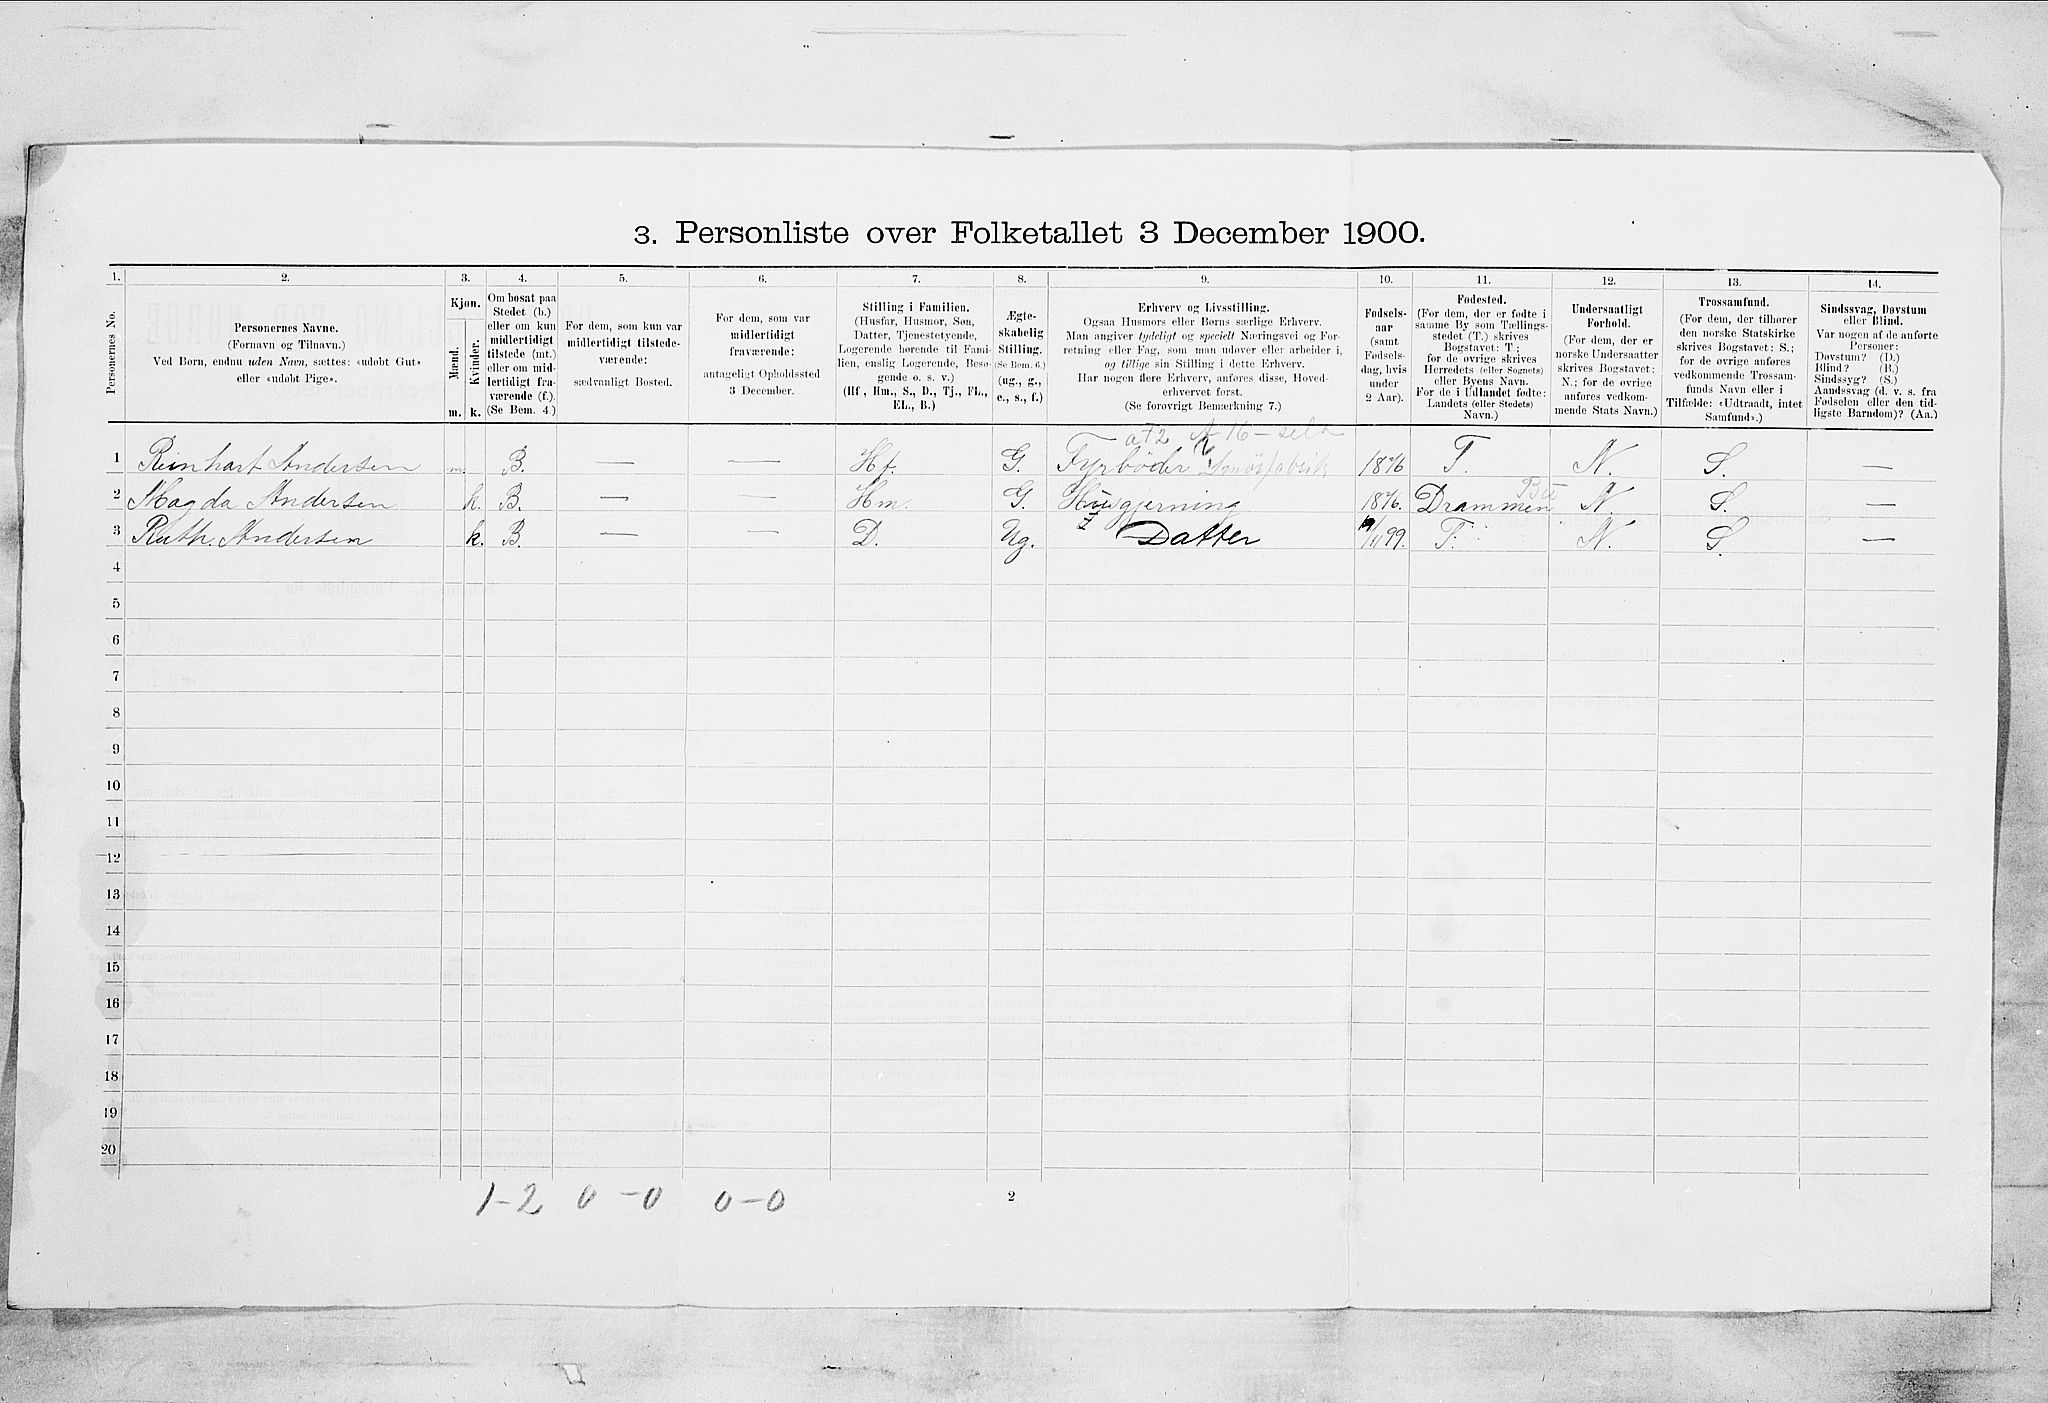 3. Personliste over Folketallet 3 December 1900.
1. 2. 3. 4. 5. 6. 7. 8. 9. 10. 11. 12. 13. 14.
Personernes No.
Personernes Navne.
(Fornavn og Tilnavn.)
Ved Børn, endnu uden Navn, sættes: «udøbt Gut»
eller «udøbt Pige».
Kjøn.
Mænd.
Kvinder.
m. k.
Om bosat paa
Stedet (b.)
eller om kun
midlertidigt
tilstede (mt.)
eller om mid-
lertidigt fra-
værende (f.).
(Se Bem. 4.)
For dem, som kun var
midlertidigt tilstede-
værende:
sædvanligt Bosted.
For dem, som var
midlertidigt
fraværende:
antageligt Opholdssted
3 December.
Stilling i Familien.
(Husfar, Husmor, Søn,
Datter, Tjenestetyende,
Logerende hørende til Fami-
lien, enslig Logerende, Besø-
gende o. s. v.)
(Hf., Hm., S., D., Tj., FL.,
EL., B.)
Ægte-
skabelig
Stilling.
(Se Bem. 6.)
(ug., g.,
e., s., f.)
Erhverv og Livsstilling.
Ogsaa Husmors eller Børns særlige Erhverv.
Man angiver tydeligt og specielt Næringsvei og For-
retning eller Fag, som man udøver eller arbeider i,
og tillige sin Stilling i dette Erhverv.
Har nogen flere Erhverv, anføres disse, Hoved-
erhvervet først.
(Se forøvrigt Bemærkning 7.)
Fødsels-
aar
(samt
Fødsels-
dag, hvis
under
2 Aar).
Fødested.
(For dem, der er fødte i
samme By som Tællings-
stedet (T.) skrives
Bogstavet: T;
for de øvrige skrives
Herredets (eller Sognets)
eller Byens Navn.
For de i Udlandet fødte:
Landets (eller Stedets)
Navn.)
Undersaatligt
Forhold.
(For dem, der er
norske Undersaatter
skrives Bogstavet:
N.; for de øvrige
anføres vedkom-
mende Stats Navn.)
Trossamfund.
(For dem, der tilhører
den norske Statskirke
skrives Bogstavet: S.;
for de øvrige anføres
vedkommende Trossam-
funds Navn eller i
Tilfælde: «Udtraadt, intet
Samfund».)
Sindssvag, Døvstum
eller Blind.
Var nogen af de anførte
Personer:
Døvstum? (D.)
Blind? (B.)
Sindssyg? (S.)
Aandssvag (d. v. s. fra
Fødselen eller den tid-
ligste Barndom)? (Aa.)
1 Reinhart Andersen m. B. — — Hf. G. Fyrbøder Smørfabrik 1876 T. N. S. —
2 Magda Andersen k. B. — — Hm. G. Husgjerning 1876. Drammen N. S. —
3 Ruth. Andersen k. B. — — D. Ug. Datter 19/11 99. T. N. S. —
4
5
6
7
8
9
10
11
12
13
14
15
16
17
18
19
20
1-2 0-0 0-0
2